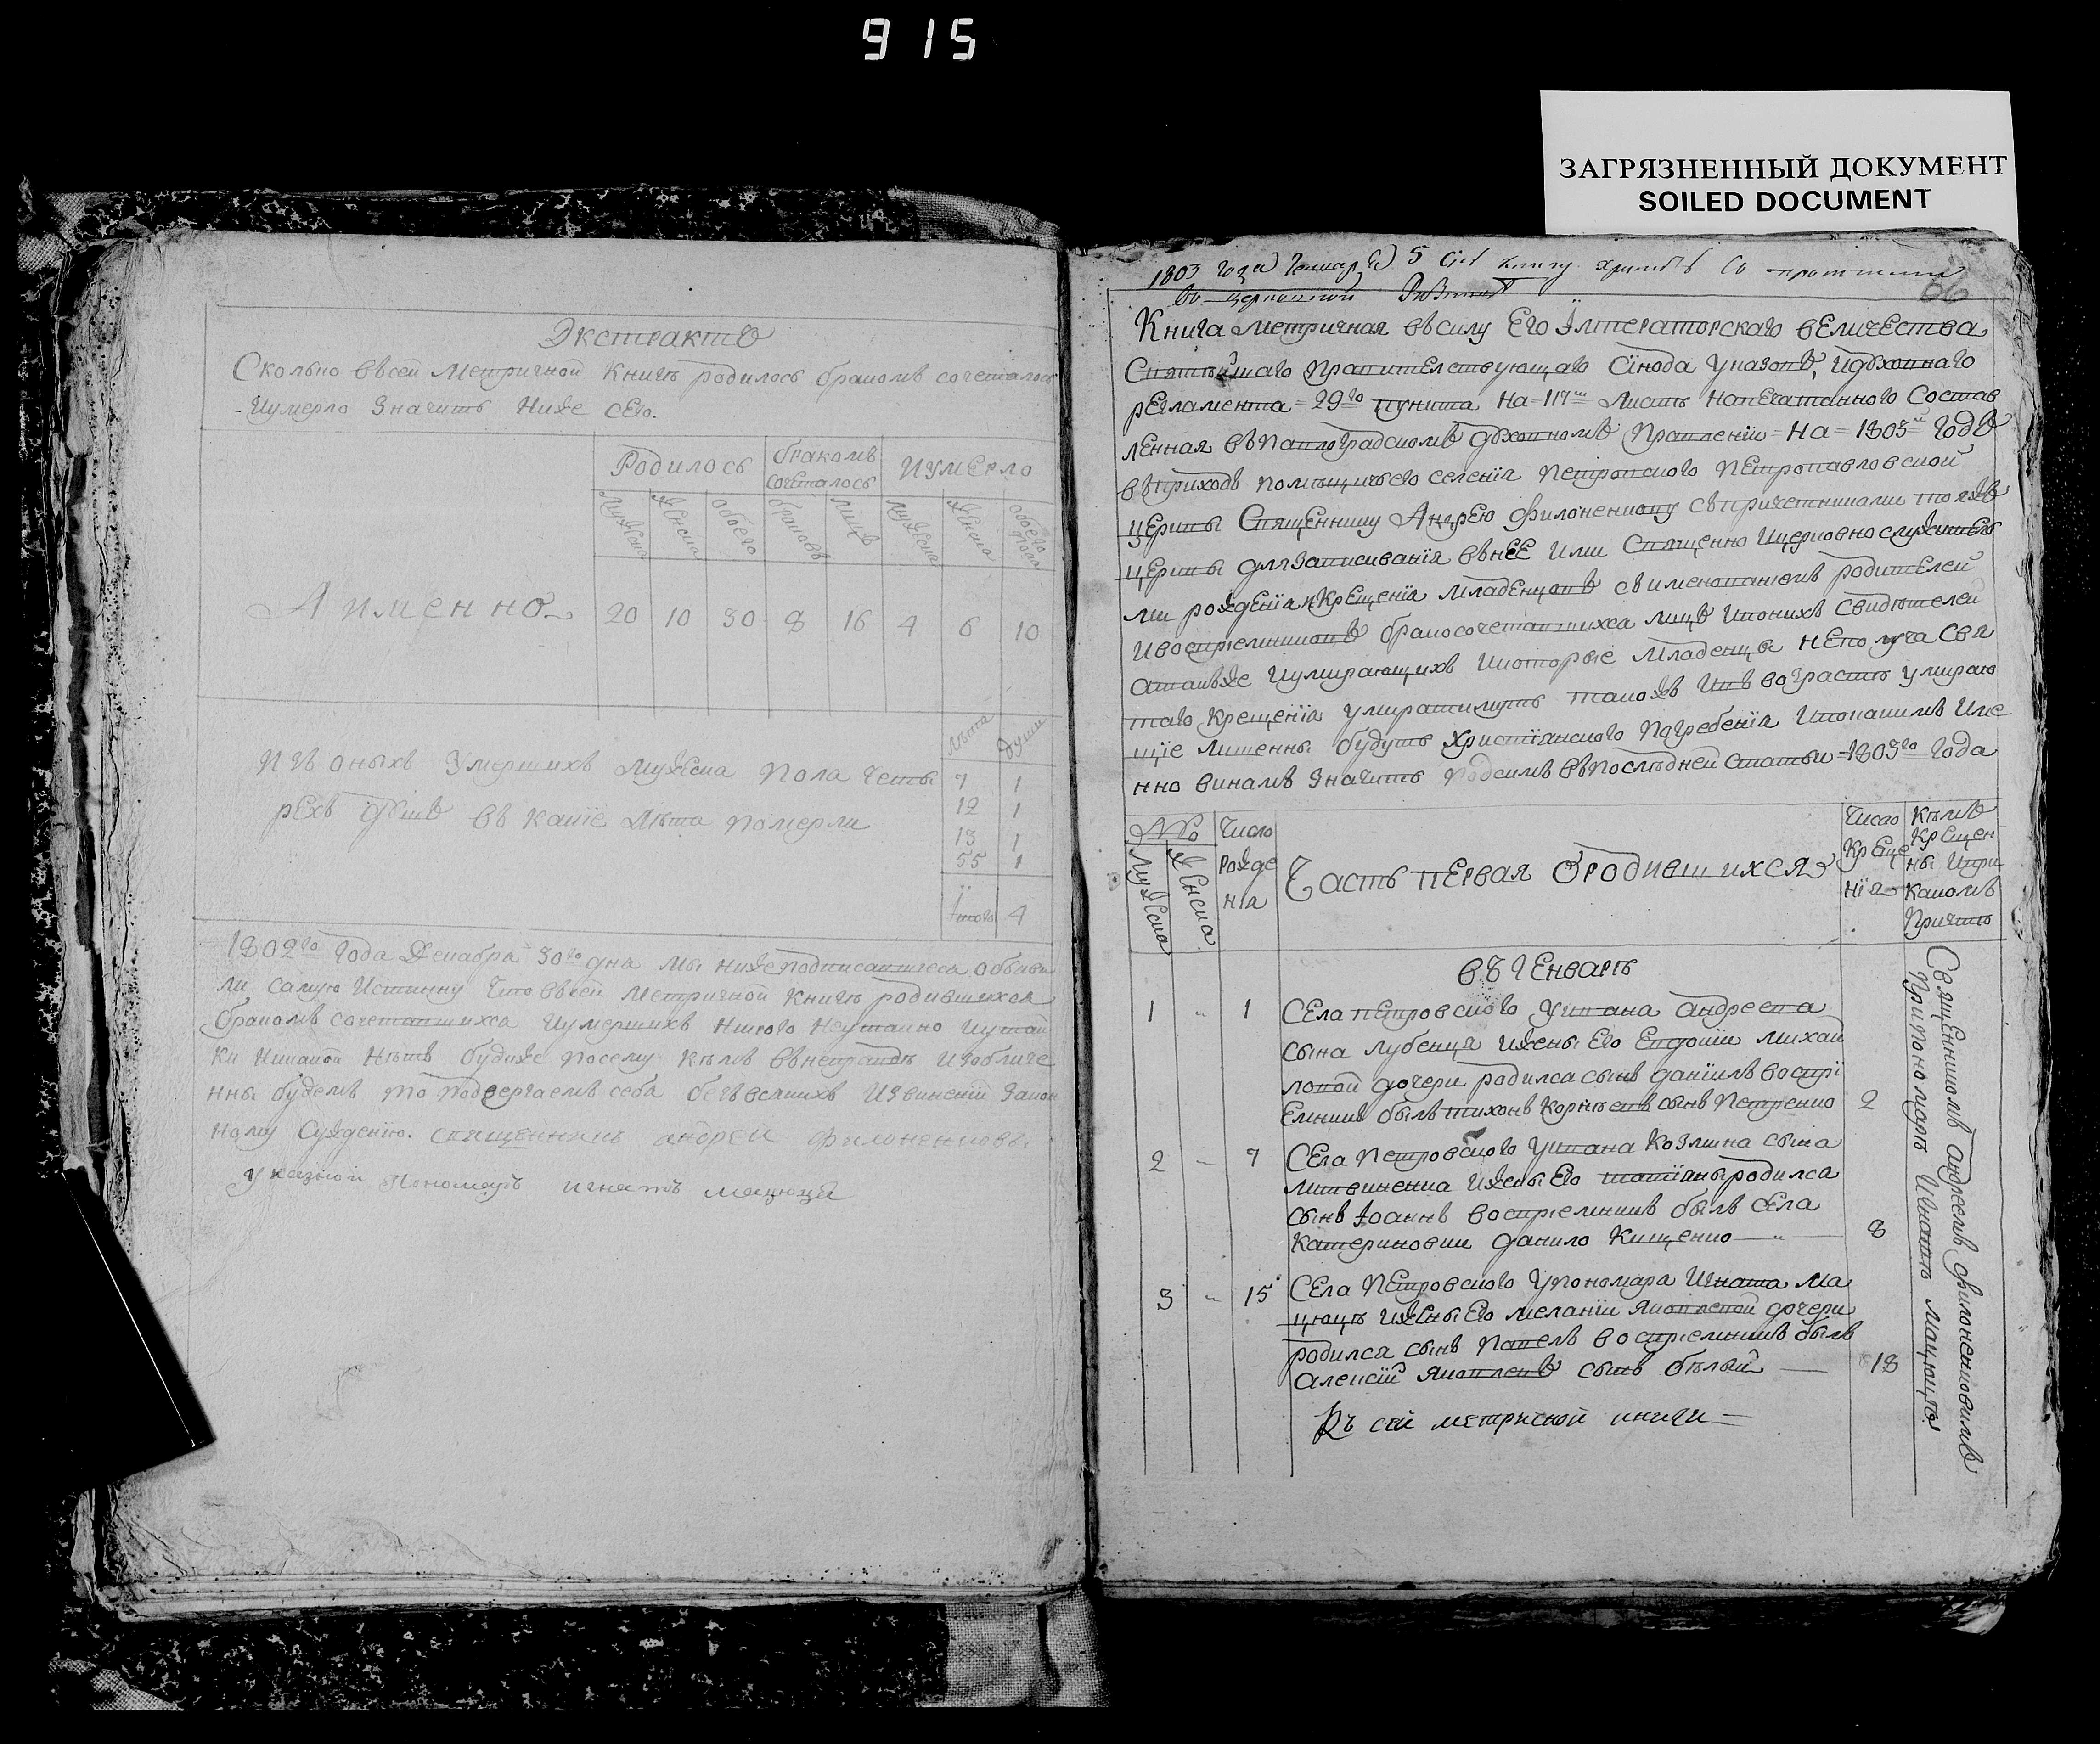 915
ЗАГРЯЗНЕННЫЙ ДОКУМЕНТ
SOILED DOCUMENT
Экстрактъ
Сколько въ сей Метричной Книгѣ родилось бракомъ сочеталось
И умерло Значитъ Ниже сего.
Родилось бракомъ сочеталось И умерло
Мужеска Женска обоего браковъ лицъ Мужеска Женска обоего пола
А именно. 20 10 30 8 16 4 6 10
Лѣта души
Изъ оныхъ Умершихъ Мужеска Пола Четы 7 1
рехъ душъ въ какіе Лѣта померли 12 1
13 1
55 1
Итого 4
1802го Года Декабря 30го дня Мы нижеподписавшіеся объяви
ли самую Истинну Что въ сей Метричной Книгѣ родившихся
бракомъ сочетавшихся И умершихъ Никого Неутаено И утай
ки Никакой Нѣтъ буди же посему кѣмъ въ неправдѣ Изобличе
нны будемъ То подвергаемъ себя безъ всякихъ Извиненій Закон
ному Сужденію. священникъ андрей Филоненковъ
указной Пономарь игнатъ мацюца
1803 года Генваря 5 сію книгу хранить со протчими
въ церковной Ризницѣ
66
Книга Метричная въ силу Его Императорскаго Величества
Святѣйшаго Правителствующаго Сінода Указовъ, И духовнаго
регламента 29го пункта На 117м Листѣ Напечатанного Состав
ленная въ Павлоградскомъ духовномъ Правленіи На 1803й Годъ
въ приходъ помѣщичьего селенія Петровского Петропавловской
церкви Священнику Андрею Филоненкову съ причетниками тояжъ
церкви для записиванія въ нее Ими Священно И церковно служителя
ми рожденія И Крещенія Младенцовъ съ именованіемъ родителей
И воспріемниковъ бракосочетавшихся лицъ И по нихъ Свидѣтелей
а такъже И умирающихъ И которые Младенцы Неполуча Свя
таго Крещенія умиратимутъ такожъ И въ возрастѣ умираю
щіе Лишенны будутъ Христіянского Погребенія И по какимъ Име
нно винамъ Значитъ Подсимъ въ Послѣдней Статьи 1803го года
№ Мужеска Женска
Число рожденія
Часть первая О родившихся
Число Крещенія
Кѣмъ Крещенны И при каком Причтѣ
въ Генварѣ
1 " 1 Села Петровского У ивана андреева
сына лубенца И жены Его Евдокіи михаи
ловой дочери родился сынъ даніилъ воспрі
емникъ былъ тихонъ Корнѣевъ сынъ Петренко 2
2 " 7 Села Петровского У ивана Козмина сына
литвиненка И жены Его татіаны родился
сынъ Іоаннъ воспріемникъ былъ села
Катериновки данило Кищенко — " — 8
3 " 15 Села Петровского У пономаря Игната ма
цюцы И жены Его меланіи Яковлевой дочери
родился сынъ Павелъ воспріемникъ былъ
Алексій Яковлевъ сынъ бѣлый — 18
Священникомъ андреемъ филоненковимъ
При пономарѣ Игнатѣ мацюцѣ
Къ сей метричной книги